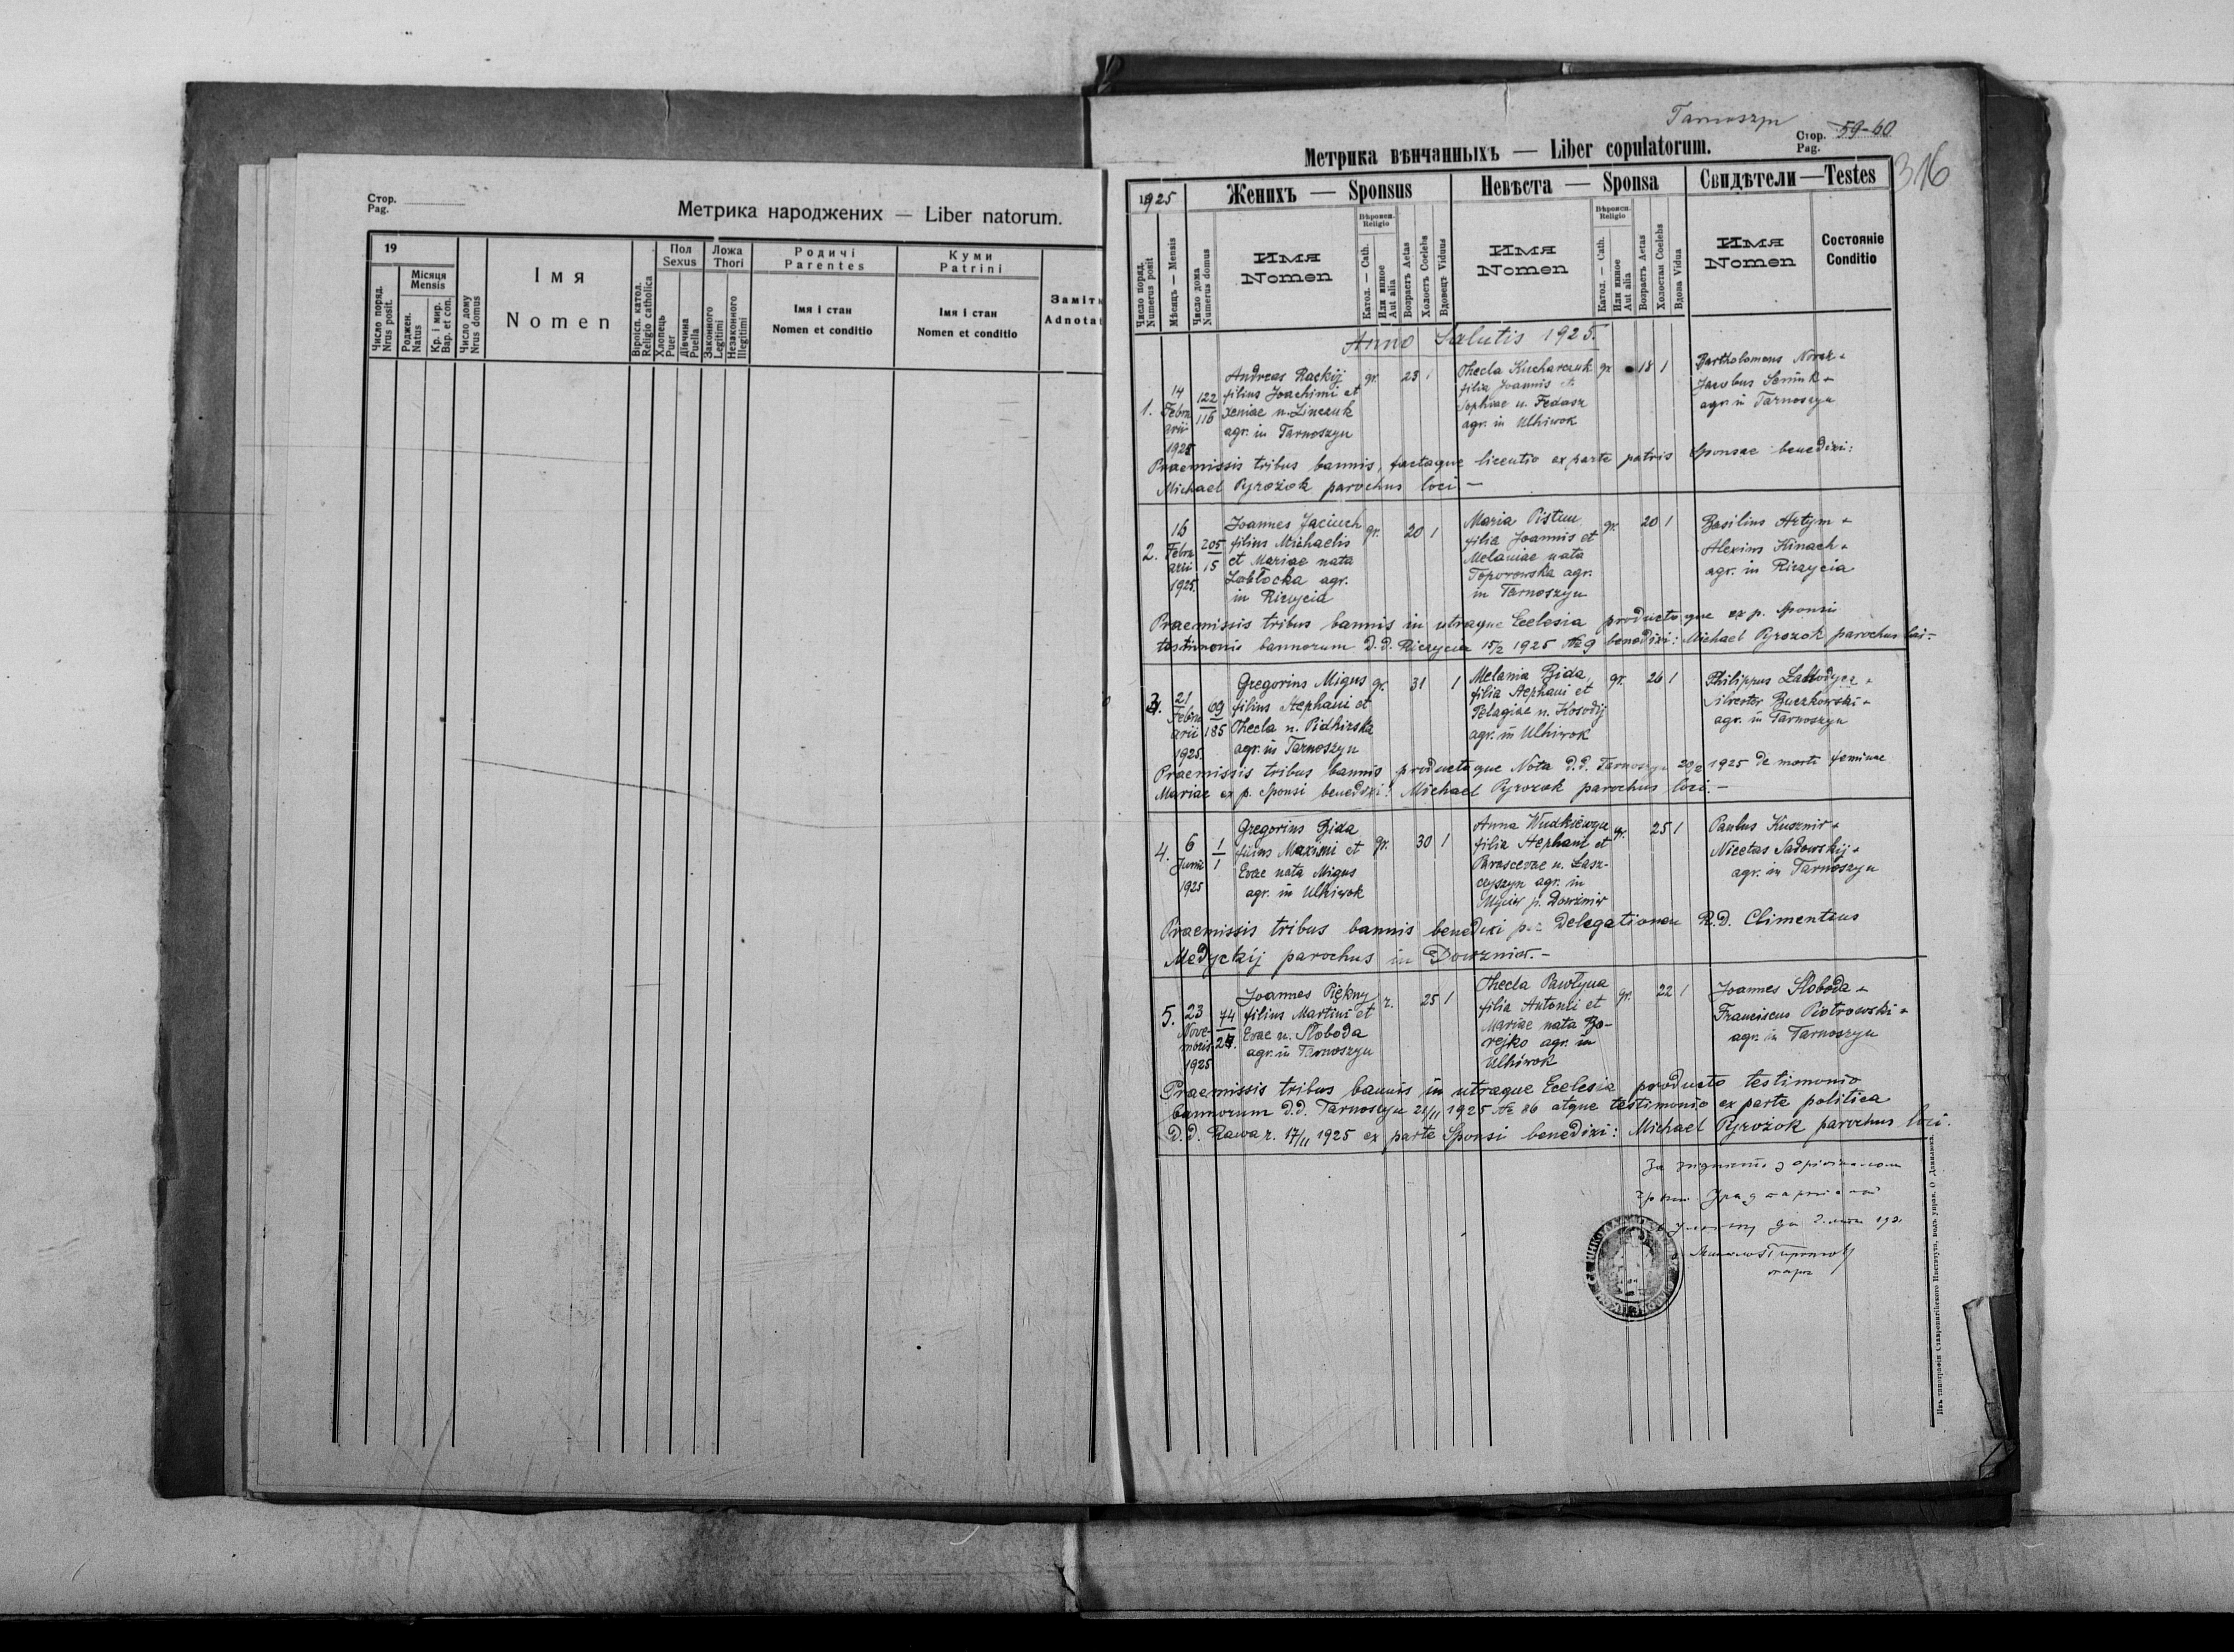 Стор.
Pag.
Метрика народжених — Liber natorum.
19
Число поряд.
Nrus posit.
Місяця
Mensis
Роджен.
Natus
Кр. і мир.
Bap. et con.
Число дому
Nrus domus
Імя
Nomen
Віроісп. катол.
Religio catholica
Пол
Sexus
Хлопець
Puer
Дівчина
Puella
Ложа
Thori
Законного
Legitimi
Незаконного
Illegitimi
Родичі
Parentes
Імя і стан
Nomen et conditio
Куми
Patrini
Імя і стан
Nomen et conditio
Заміт
Adnota
Tarnoszyn
Стор.
Pag. 59-60
316
Метрика вѣнчанныхъ — Liber copulatorum.
1925
Женихъ — Sponsus
Невѣста — Sponsa
Свидѣтели — Testes
Число поряд.
Numerus posit
Мѣсяцъ — Mensis
Число дома
Numerus domus
Имя
Nomen
Вѣроисп.
Religio
Катол. — Cath.
Или инное
Aut alia
Возрастъ Aetas
Холостъ Coelebs
Вдовецъ Viduus
Имя
Nomen
Вѣроисп.
Religio
Катол. — Cath.
Или инное
Aut alia
Возрастъ Aetas
Холостая Coelebs
Вдова Vidua
Имя
Nomen
Состояніе
Conditio
Anno Salutis 1925.
1.
14
Febru
arii
1925
122
116
Andreas Rackij
filius Joachimi et
Xeniae n. Zinczuk
agr. in Tarnoszyn
gr. 23 1
Thecla Kucharczuk
filia Joannis et
Sophiae n. Fedasz
agr. in Ulhiwok
gr 18 1
Bartholomeus Noraz +
Jacobus Seniuk +
agr. in Tarnoszyn
Praemissis tribus bannis, factaque licentio ex parte patris Sponsae benedixi:
Michael Pyrożok parochus loci. —
2.
16
Febru
arii
1925.
205
15
Joannes Jaciuch
filius Michaelis
et Mariae nata
Zabłocka agr.
in Riczycia
gr. 20 1
Maria Pistun
filia Joannis et
Melaniae nata
Toporowska agr.
in Tarnoszyn
gr. 20 1
Basilius Artym +
Alexius Kinach +
agr. in Riczycia
Praemissis tribus bannis in utraque Ecclesia productoque ex p. Sponsi
testimonio bannorum d.d. Riczycia 15/2 1925 № 9 benedixi: Michael Pyrożok parochus loci. —
3.
21
Febru
arii
1925.
69
185
Gregorius Migus
filius Stephani et
Thecla n. Pidhirska
agr. in Tarnoszyn
gr. 31 1
Melania Bida
filia Stephani et
Pelagiae n. Kosodij
agr. in Ulhiwok
gr. 26 1
Philippus +
Silvester Buczkowski +
agr. in Tarnoszyn
Praemissis tribus bannis productoque Nota d.d. Tarnoszyn 20/2 1925 de morte feminae
Mariae ex p. Sponsi benedixi: Michael Pyrożok parochus loci. —
4.
6
Junii
1925
1
1
Gregorius Bida
filius Maximi et
Evae nata Migus
agr. in Ulhiwok
gr. 30 1
Anna Wudkiewycz
filia Stephani et
Parascevae n. Lasz-
czyszyn agr. in
Myciw p. Dowzniw
gr. 25 1
Paulus Kusznir +
Nicetas Sadowskij +
agr. in Tarnoszyn
Praemissis tribus bannis benedixi per Delegationem R.D. Climenteus
Medyckij parochus in Dowzniw. —
5.
23
Nove-
mbris
1925
74
Joannes Piękny
filius Martini et
Evae n. Słoboda
agr. in Tarnoszyn
r. 25 1
Thecla Pawłyna
filia Antonii et
Mariae nata Bo-
rejko agr. in
Ulhiwok
gr. 22 1
Joannes Słoboda +
Franciscus Piotrowski +
agr. in Tarnoszyn
Praemissis tribus bannis in utraque Ecclesia producto testimonio
bannorum d.d. Tarnoszyn 21/11 1925 № 86 atque testimonio ex parte politica
d.d. Rawa r. 17/11 1925 ex parte Sponsi benedixi: Michael Pyrożok parochus loci.
За згідність з оріґіналом